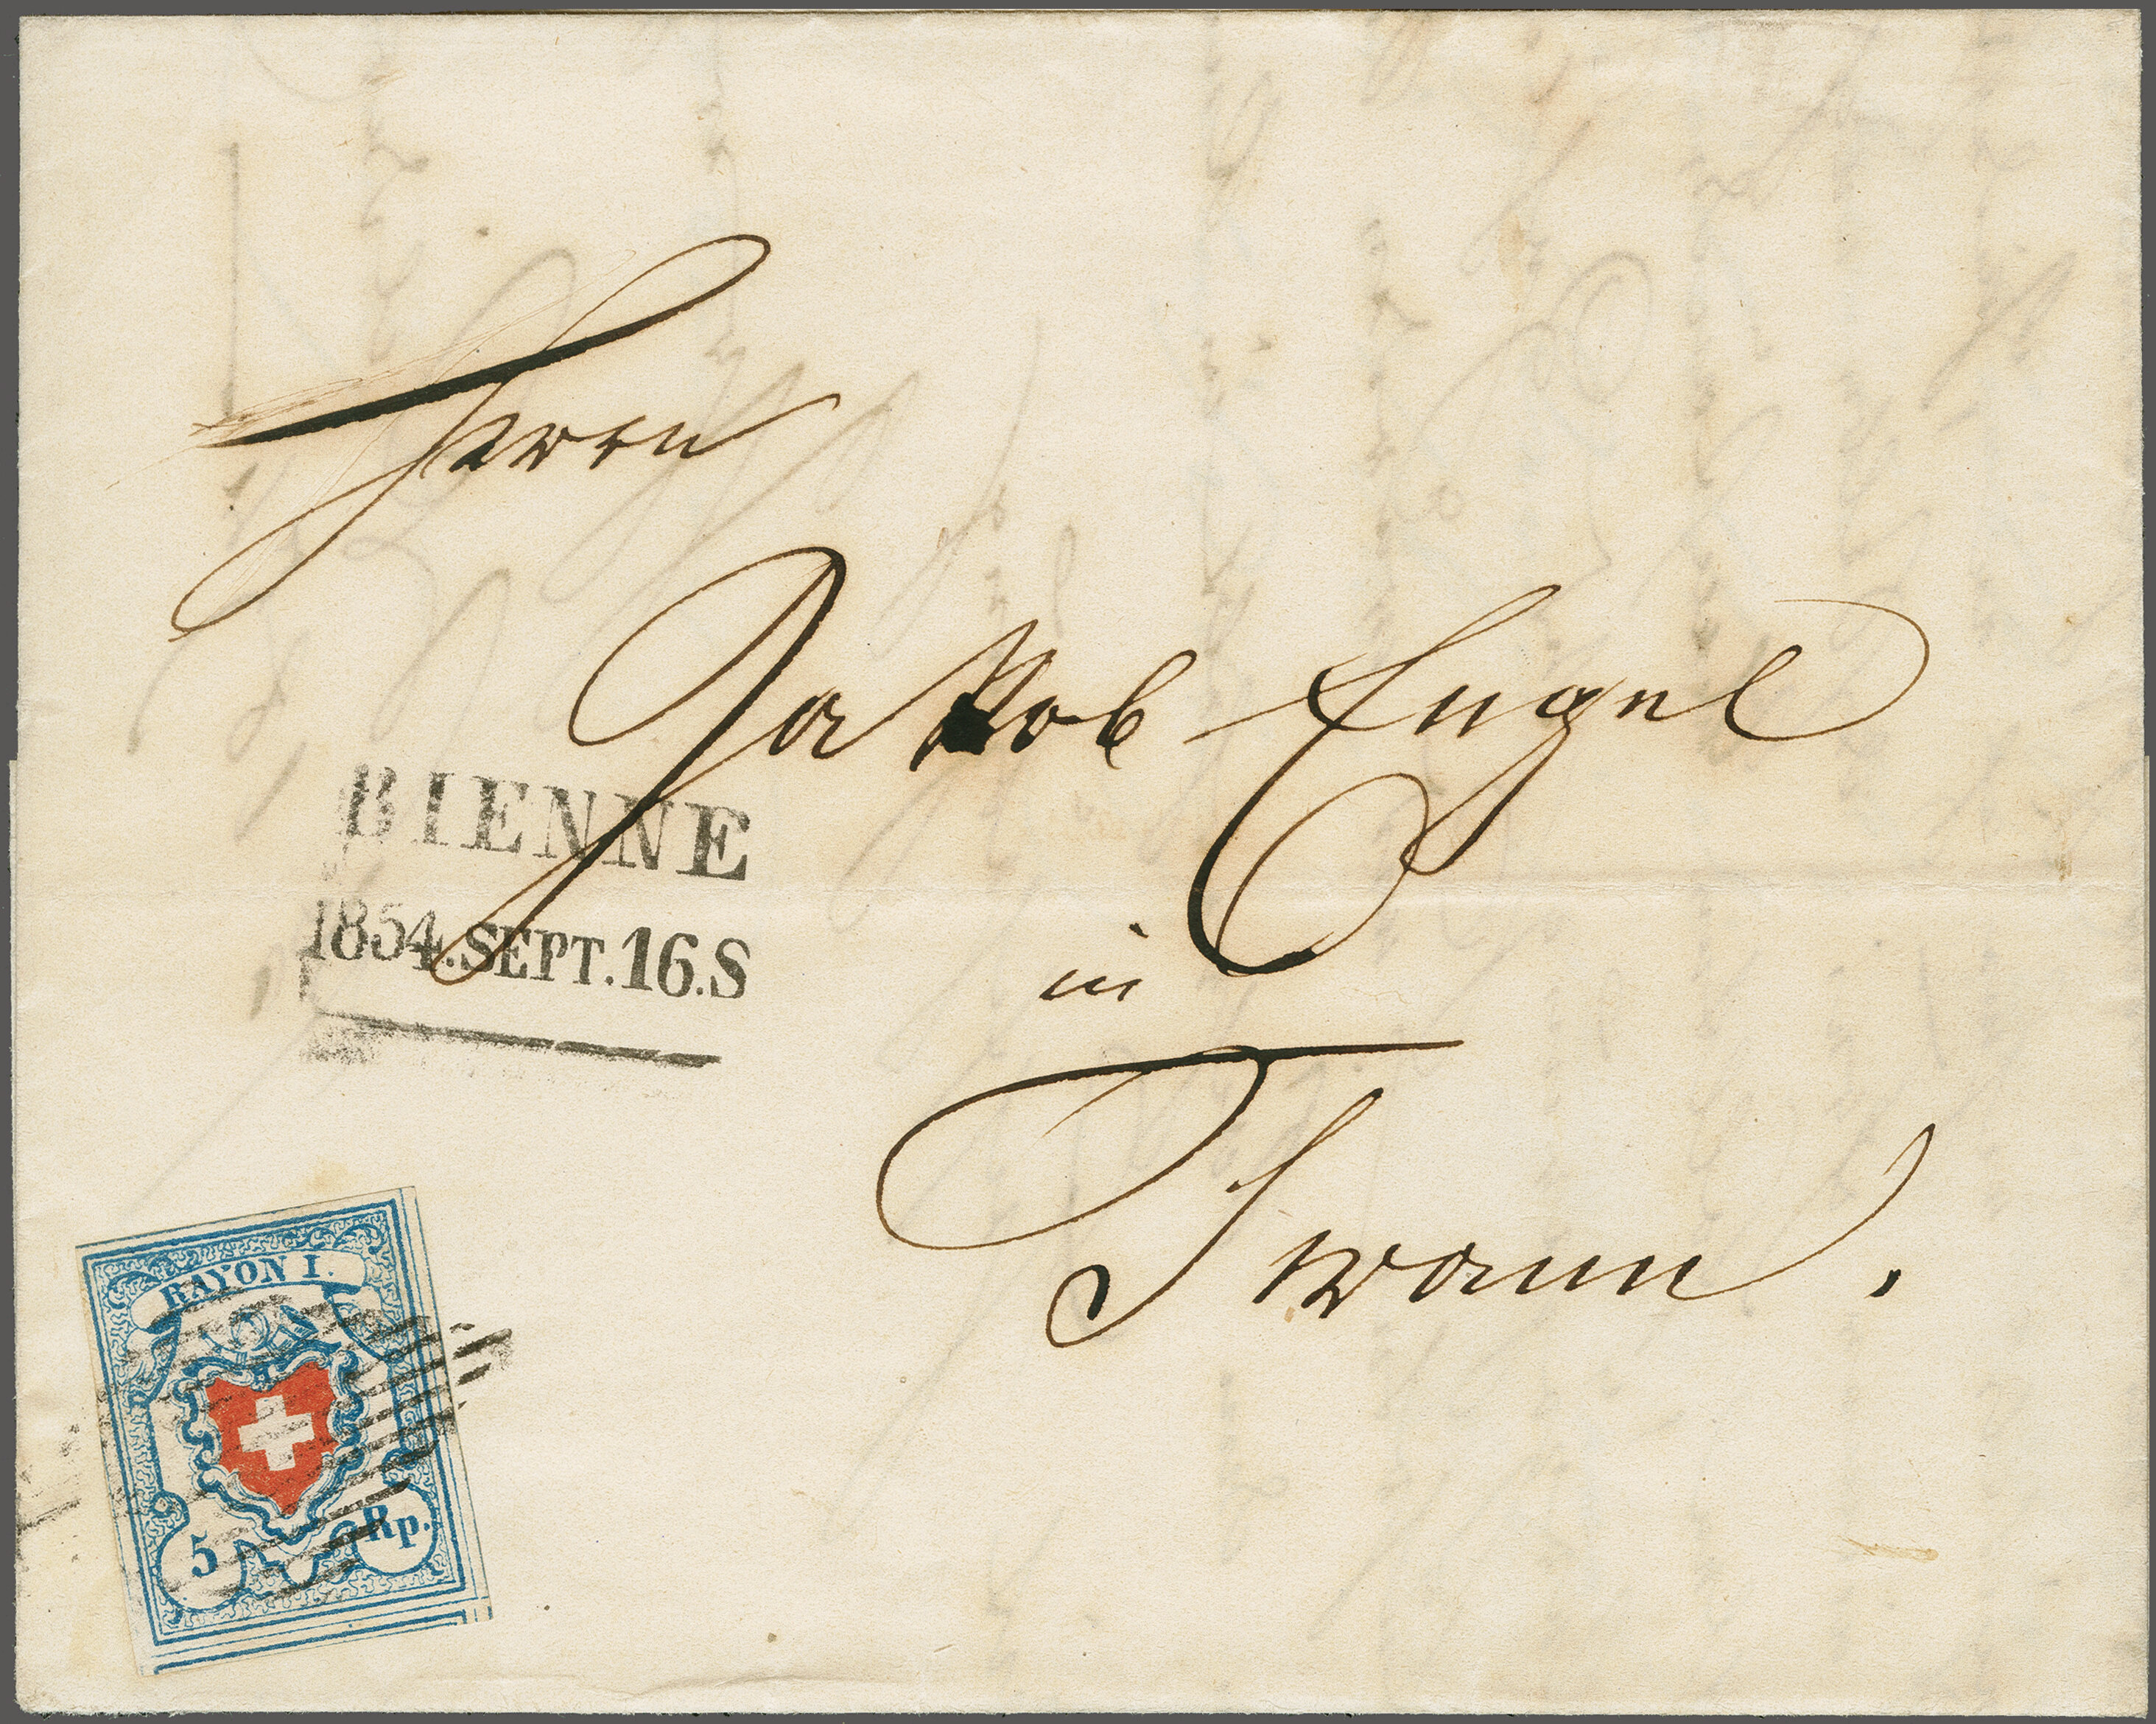 Herrn
Jakob Engel
BIENNE
1854.SEPT.16.S
in
Twann.
RAYON I.
5 Rp.